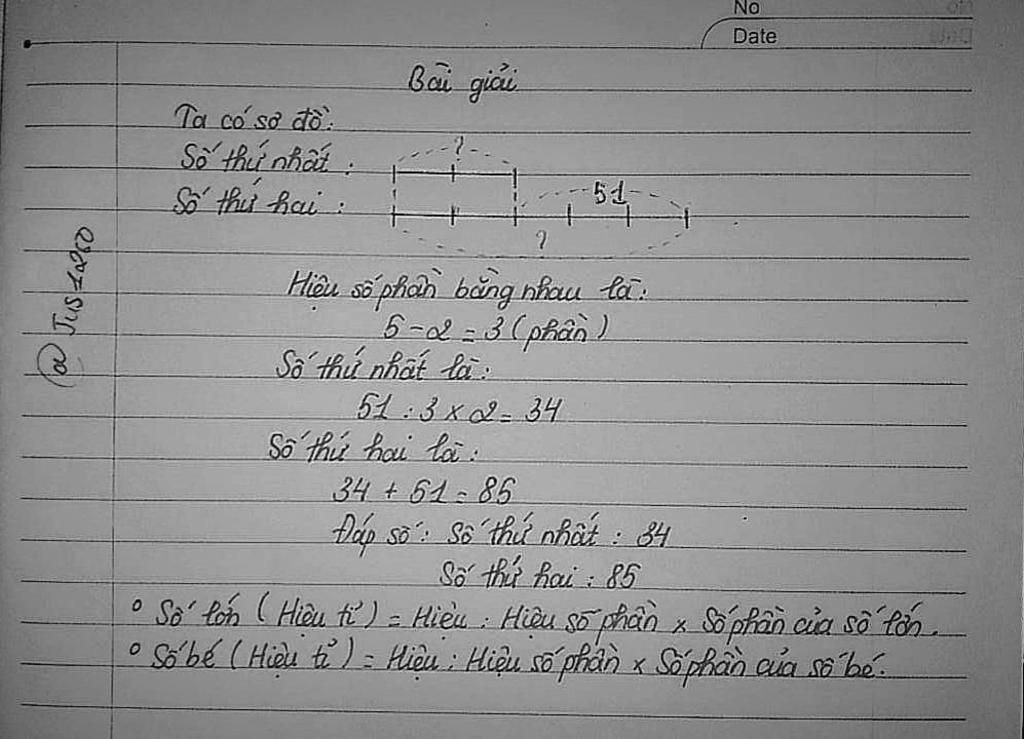 No
Date
Bài giải
Ta có sơ đồ:
?
Số thứ nhất :
51
Số thứ hai :
?
Hiệu số phần bằng nhau là:
5 - 2 = 3 (phần)
Số thứ nhất là:
51 : 3 x 2 = 34
Số thứ hai là:
34 + 51 = 85
Đáp số: Số thứ nhất : 34
Số thứ hai : 85
° Số lớn (Hiệu tỉ) = Hiệu : Hiệu số phần x Số phần của số lớn.
° Số bé (Hiệu tỉ) = Hiệu : Hiệu số phần x Số phần của số bé.